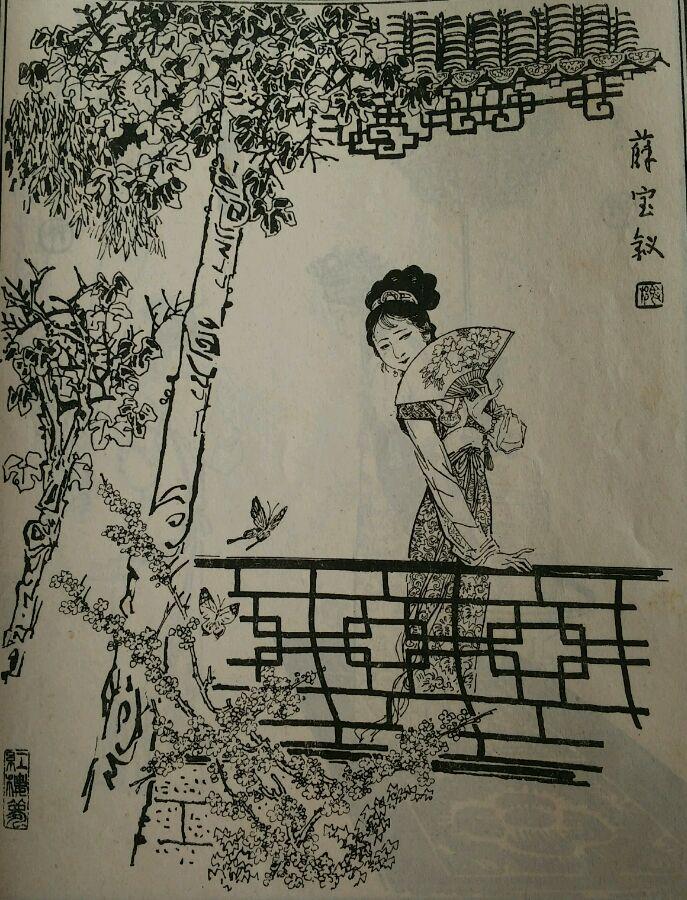 薛宝钗
红楼梦